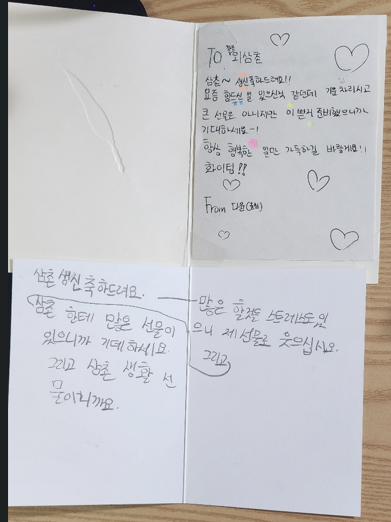 TO 외삼촌
삼촌~ 생신축하드려요!!
요즘 힘드신 일 있으신거 같던데 기운차리시고
큰 선물은 아니지만 이쁜거 준비했으니까
기대하세요~!
항상 행복한 일만 가득하길 바랄게요!!
화이팅!!
From 다윤
삼촌 생신 축하드려요.
삼촌 한테 많은 선물이
있으니까 기데하세요.
그리고 삼촌 생활 선
물이니까요.
많은 할것도 스트레스도 있
으니 제 선물로 웃으십시오.
그리고